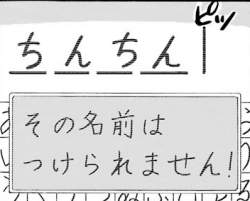 ピッ
ちんちん
その名前は
つけられません!